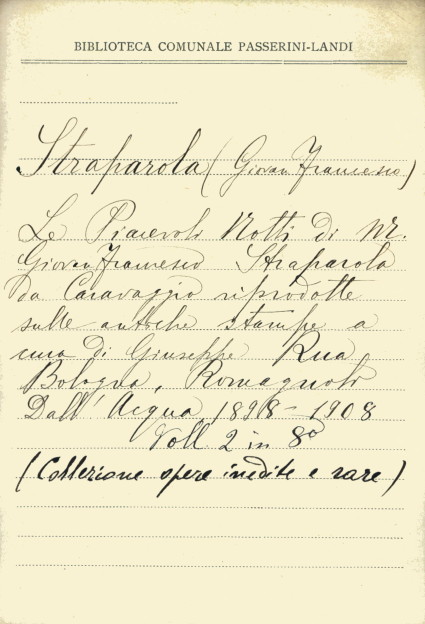 BIBLIOTECA COMUNALE PASSERINI-LANDI
Straparola (Giovan Francesco)
Le Piacevoli Notti di M.
Giovan Francesco Straparola
da Caravaggio riprodotte
sulle antiche stampe a
cura di Giuseppe Rua
Bologna, Romagnoli
Dall'Acqua, 1898-1908
Voll. 2 in 8º
(Collezione opere inedite e rare)